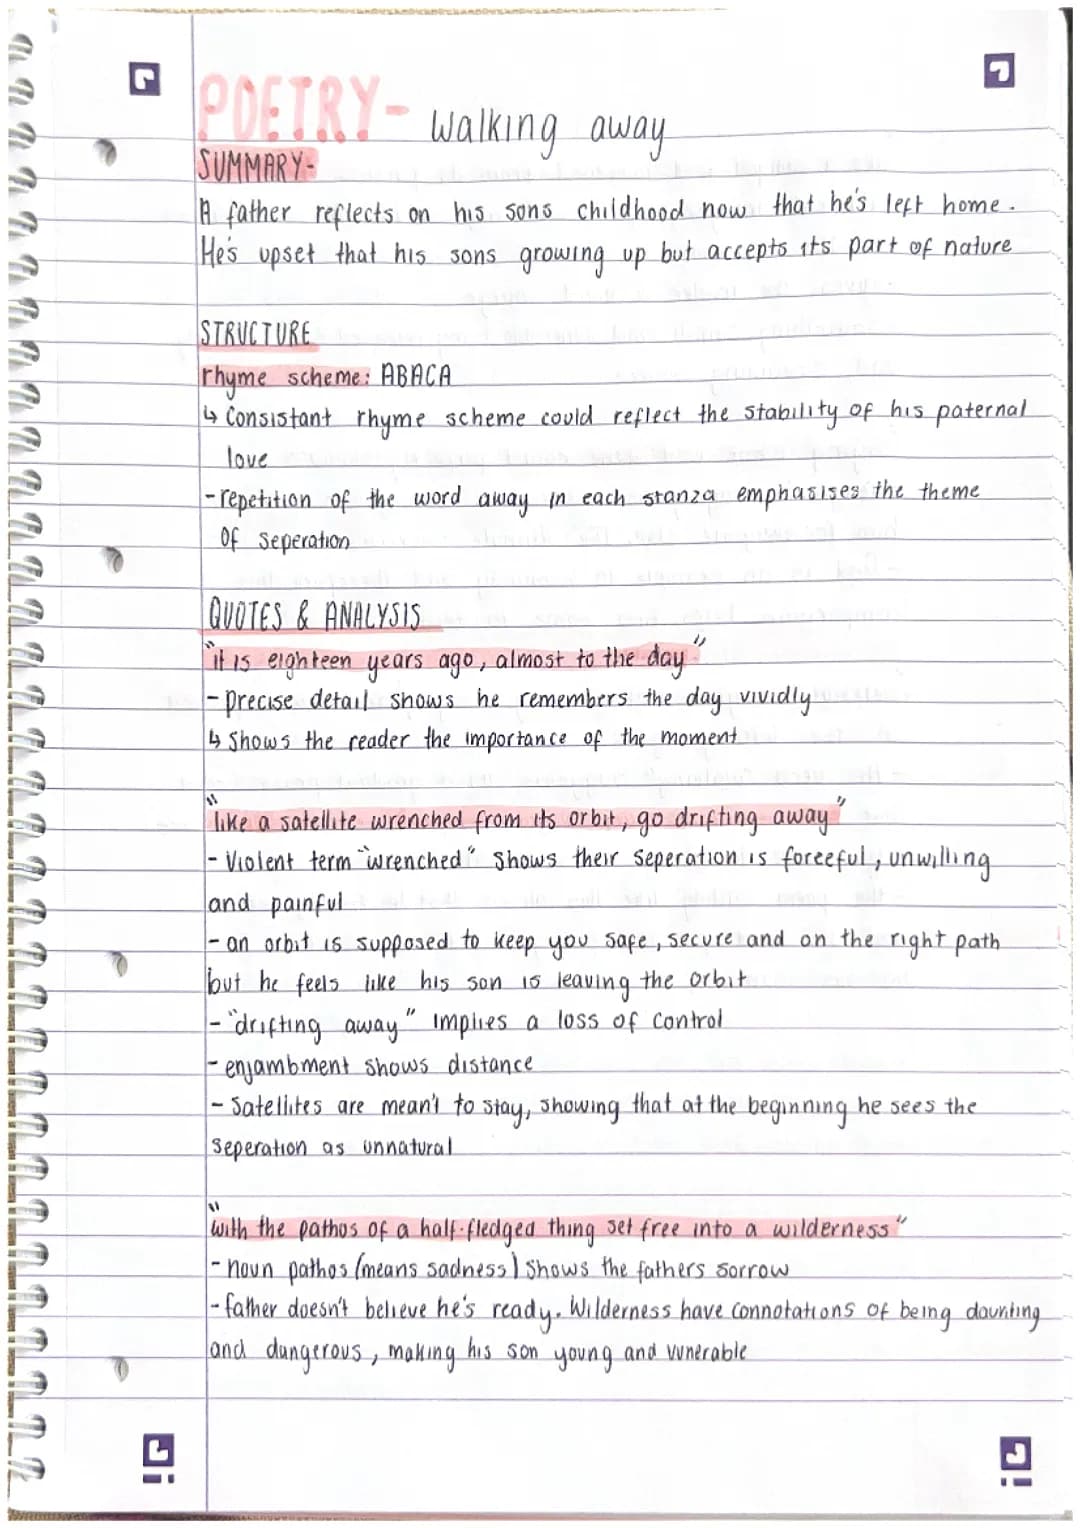 POETRY- Walking away
SUMMARY-
A father reflects on his sons childhood now that he's left home.
He's upset that his sons growing up but accepts its part of nature
STRUCTURE
rhyme scheme: ABACA
↳ Consistant rhyme scheme could reflect the stability of his paternal
love
-repetition of the word away in each stanza emphasises the theme
Of seperation
QUOTES & ANALYSIS
"it is eighteen years ago, almost to the day"
- Precise detail shows he remembers the day vividly
↳ Shows the reader the importance of the moment
"like a satellite wrenched from its orbit, go drifting away"
- Violent term "wrenched" Shows their seperation is forceful, unwilling
and painful
- an orbit is supposed to keep you safe, secure and on the right path
but he feels like his son is leaving the orbit
- "drifting away" Implies a loss of control
- enjambment shows distance
- Satellites are mean't to stay, showing that at the beginning he sees the
Seperation as unnatural
"with the pathos of a half-fledged thing set free into a wilderness"
- noun pathos (means sadness) shows the fathers sorrow
- father doesn't believe he's ready. Wilderness have connotations of being daunting
and dangerous, making his son young and vunerable